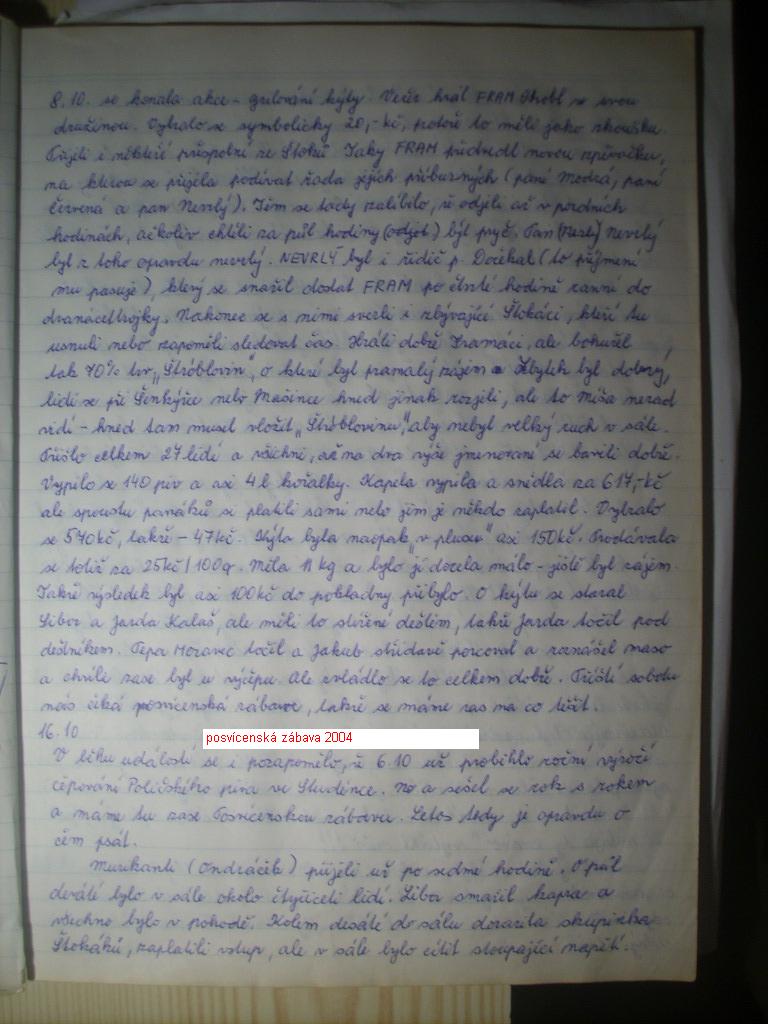 8.10. se konala akce - grilování kýty. Večer hrál FRAM Štrobl se svou
družinou. Vybralo se symbolicky 20,- kč, protože to měli jako zkoušku.
Přijeli i někteří přespolní ze Štoků. Taky FRAM předvedl novou zpěvačku,
na kterou se přijela podívat řada jejích příbuzných (paní Modrá, paní
Červená a pan Nevrlý). Těm se tady zalíbilo, že odjeli až v pozdních
hodinách, ačkoliv chtěli za půl hodiny (odjet) být pryč. Pan Nevrlý
byl z toho opravdu nevrlý. NEVRLÝ byl i řidič p. Dočekal (to příjmení
mu pasuje), který se snažil dostat FRAM po čtvrté hodině ranní do
dvanáctetrojky. Nakonec se s nimi svezli i zbývající Štokáci, kteří tu
usnuli nebo zapoměli sledovat čas. Hráli dobře Framáci, ale bohužel,
tak 70% tzv. „Štróblovin", o které byl pramalý zájem. Zbytek byl dobrý,
lidi se při Šenkýřce nebo Mašince hned jinak rozjeli, ale to Míša nerad
vidí - hned tam musel vložit „Štróblovinu", aby nebyl velký ruch v sále.
Přišlo celkem 27 lidí a všichni, až na dva výše jmenované se bavili dobře.
Vypilo se 140 piv a asi 4 l kořalky. Kapela vypila a snědla za 617,- kč
ale spoustu panáků si platili sami nebo jim je někdo zaplatil. Vybralo
se 570 kč, takže - 47 kč. Kýta byla naopak „v plusu" asi 150 kč. Prodávala
se totiž za 25 kč/100g. Měla 11 kg a bylo jí docela málo - ještě byl zájem.
Takže výsledek byl asi 100 kč do pokladny přibylo. O kýtu se staral
Libor a Jarda Kalaš, ale měli to stížené deštěm, takže Jarda točil pod
deštníkem. Pepa Moravec točil a Jakub střídavě porcoval a roznášel maso
a chvíli zase byl u výčepu. Ale zvládlo se to celkem dobře. Příští sobotu
nás čeká posvícenská zábava, takže se máme zas na co těšit.
16.10
posvícenská zábava 2004
V běhu událostí se i pozapomělo, že 6.10 už proběhlo roční výročí
čepování Poličského piva ve Studénce. No a sešel se rok s rokem
a máme tu zase Posvícenskou zábavu. Letos tedy je opravdu o
čem psát.
Muzikanti (Ondráček) přijeli už po sedmé hodině. O půl
deváté bylo v sále okolo čtyřiceti lidí. Libor smažil kapra a
všechno bylo v pohodě. Kolem desáté do sálu dorazila skupinka
Štokáků, zaplatili vstup, ale v sále bylo cítit stoupající napětí.